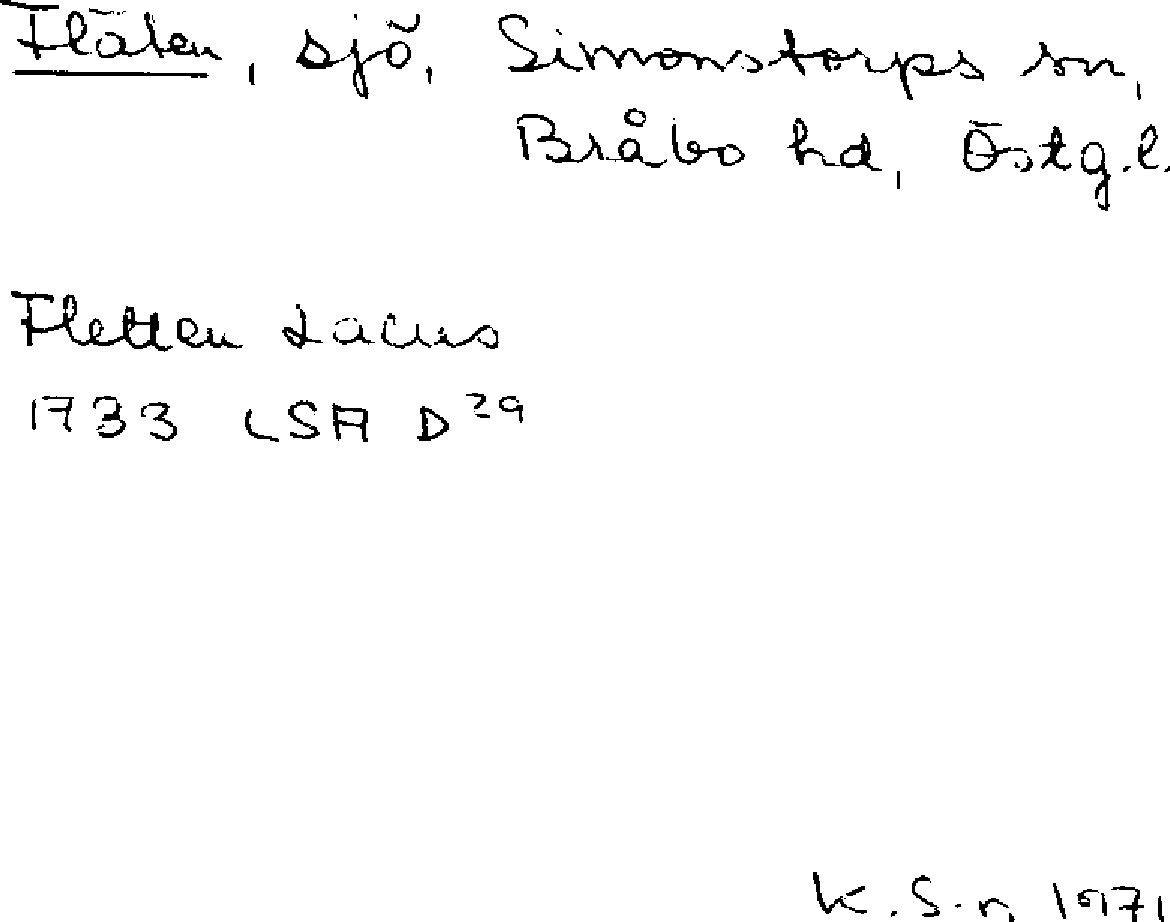 Fläten, sjö, Simonstorps sn,
Bråbo hd, Östg.l.
Fletten Lacus
1733 LSA D 29
K. S-n 1971